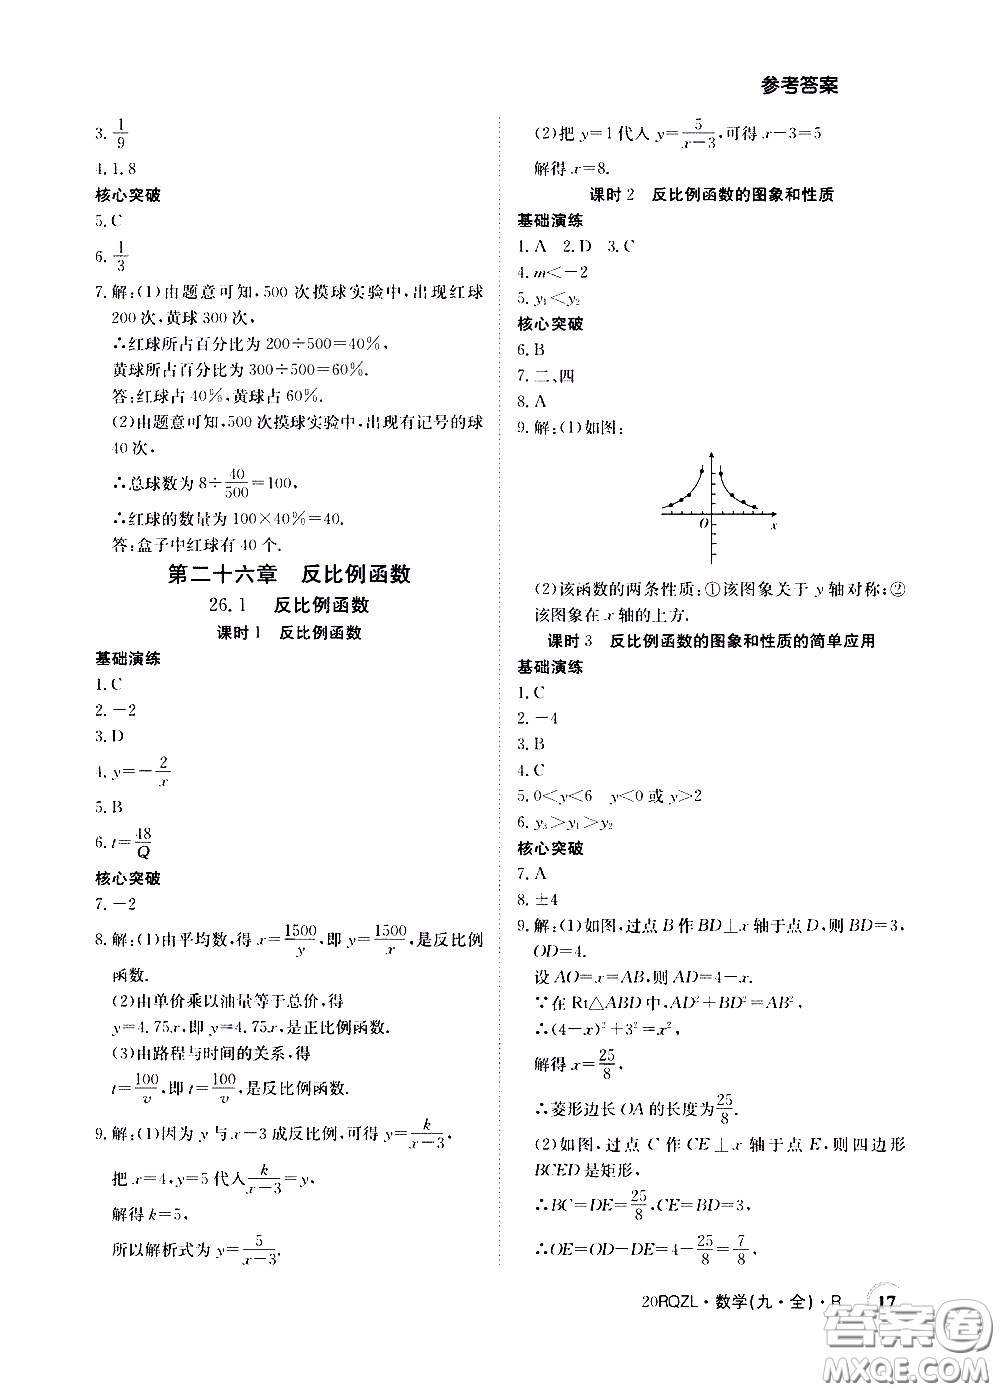 参考答案
3. 1/9
4. 1.8
核心突破
5. C
6. 1/3
7. 解:(1)由题意可知,500 次摸球实验中,出现红球
200 次,黄球 300 次,
∴红球所占百分比为 200÷500=40%,
黄球所占百分比为 300÷500=60%.
答:红球占 40%,黄球占 60%.
(2)由题意可知,500 次摸球实验中,出现有记号的球
40 次,
∴总球数为 8÷40/500=100,
∴红球的数量为 100×40%=40.
答:盒子中红球有 40 个.
第二十六章 反比例函数
26.1 反比例函数
课时 1 反比例函数
基础演练
1. C
2. -2
3. D
4. y=-2/x
5. B
6. t=48/Q
核心突破
7. -2
8. 解:(1)由平均数,得 x=1500/y,即 y=1500/x,是反比例
函数.
(2)由单价乘以油量等于总价,得
y=4.75x,即 y=4.75x,是正比例函数.
(3)由路程与时间的关系,得
t=100/v,即 t=100/v,是反比例函数.
9. 解:(1)因为 y 与 x-3 成反比例,可得 y=k/(x-3),
把 x=4,y=5 代入 k/(x-3)=y,
解得 k=5,
所以解析式为 y=5/(x-3).
(2)把 y=1 代入 y=5/(x-3),可得 x-3=5
解得 x=8.
课时 2 反比例函数的图象和性质
基础演练
1. A 2. D 3. C
4. m<-2
5. y₁<y₂
核心突破
6. B
7. 二、四
8. A
9. 解:(1)如图:
O x
(2)该函数的两条性质:①该图象关于 y 轴对称;②
该图象在 x 轴的上方.
课时 3 反比例函数的图象和性质的简单应用
基础演练
1. C
2. -4
3. B
4. C
5. 0<y<6 y<0 或 y>2
6. y₃>y₁>y₂
核心突破
7. A
8. ±4
9. 解:(1)如图,过点 B 作 BD⊥x 轴于点 D,则 BD=3,
OD=4.
设 AO=x=AB,则 AD=4-x.
∵在 Rt△ABD 中,AD²+BD²=AB²,
∴(4-x)²+3²=x²,
解得 x=25/8,
∴菱形边长 OA 的长度为 25/8.
(2)如图,过点 C 作 CE⊥x 轴于点 E,则四边形
BCED 是矩形,
∴BC=DE=25/8,CE=BD=3,
∴OE=OD-DE=4-25/8=7/8,
20RQZL·数学(九·全)·R 17
答案圈
MXQE.COM